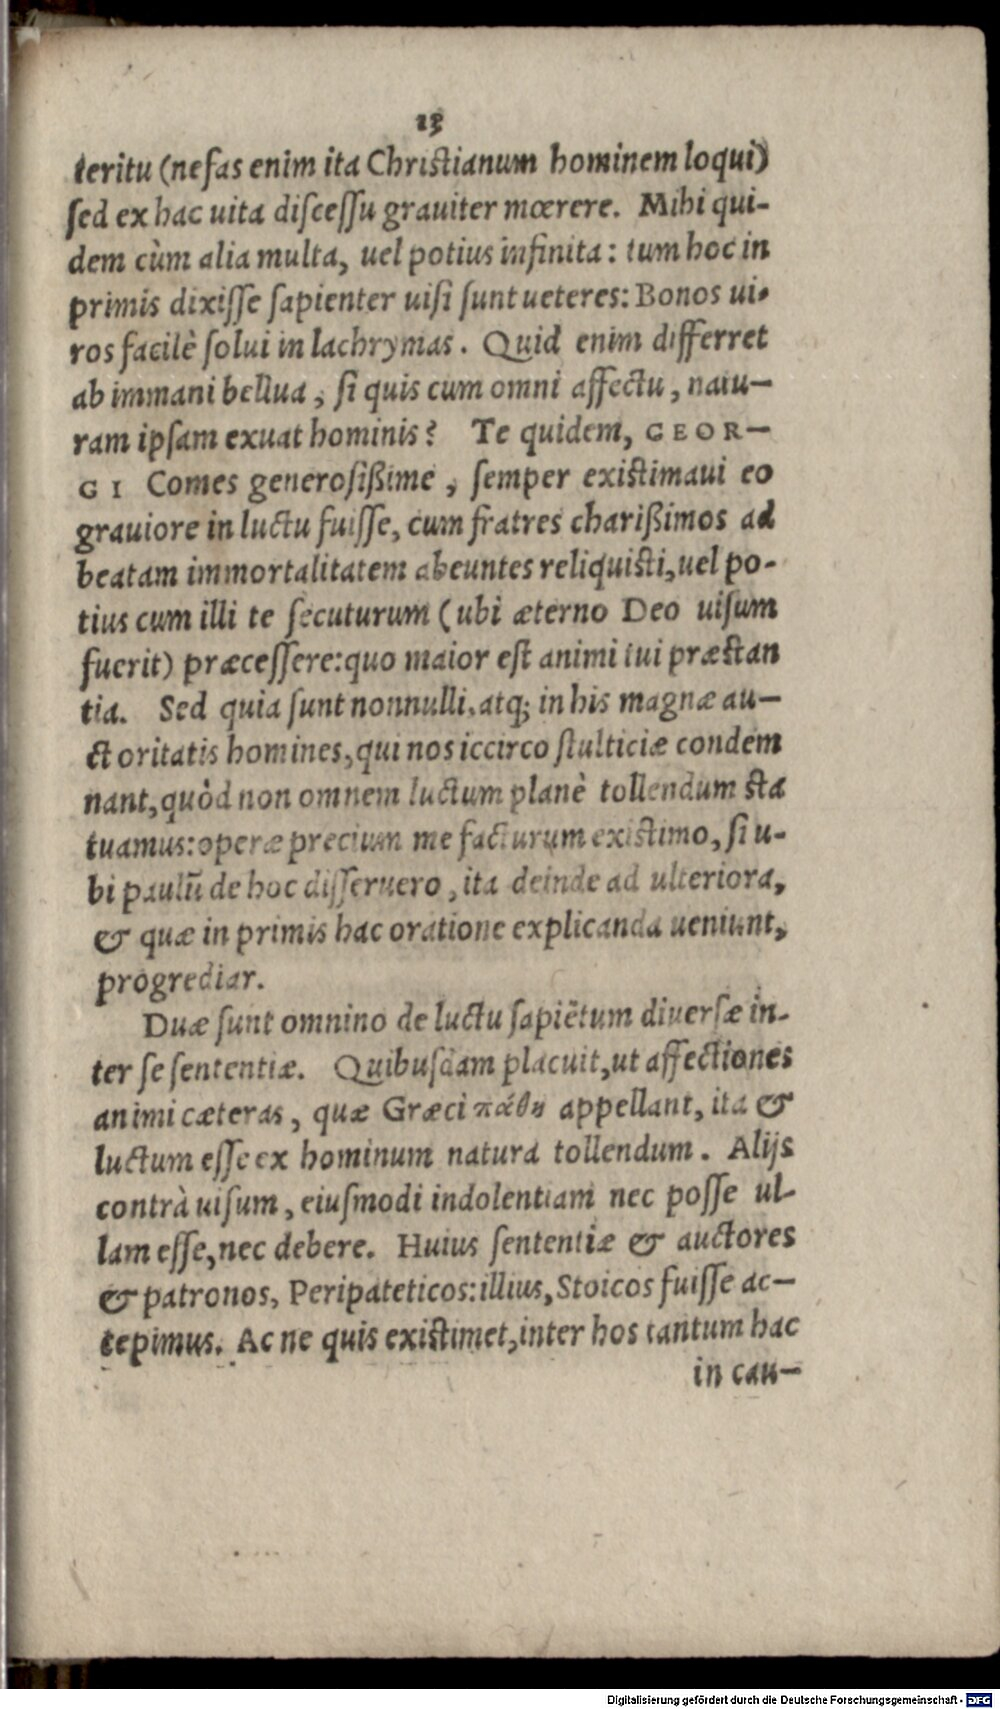 13
teritu (nefas enim ita Christianum hominem loqui)
ſed ex hac uita diſceſſu grauiter mœrere. Mihi qui-
dem cùm alia multa, uel potius infinita: tum hoc in
primis dixiſſe ſapienter uiſi ſunt ueteres: Bonos ui-
ros facilè ſolui in lachrymas. Quid enim differret
ab immani bellua, ſi quis cum omni affectu, natu-
ram ipſam exuat hominis? Te quidem, GEOR-
GI Comes generoſißime, ſemper existimaui eo
grauiore in luctu fuiſſe, cum fratres charißimos ad
beatam immortalitatem abeuntes reliquisti, uel po-
tius cum illi te ſecuturum (ubi æterno Deo uiſum
fuerit) præceſſere: quo maior est animi tui præstan
tia. Sed quia ſunt nonnulli, atq; in his magnæ au-
ctoritatis homines, qui nos iccirco ſtulticiæ condem
nant, quòd non omnem luctum planè tollendum sta
tuamus: operæ precium me facturum existimo, ſi u-
bi paulũ de hoc diſſeruero, ita deinde ad ulteriora,
& quæ in primis hac oratione explicanda ueniunt,
progrediar.
Duæ ſunt omnino de luctu ſapiẽtum diuerſæ in-
ter ſe ſententiæ. Quibuſdam placuit, ut affectiones
animi cæteras, quæ Græci πάθη appellant, ita &
luctum eſſe ex hominum natura tollendum. Alijs
contrà uiſum, eiuſmodi indolentiam nec poſſe ul-
lam eſſe, nec debere. Huius ſententiæ & auctores
& patronos, Peripateticos: illius, Stoicos fuiſſe ac-
cepimus. Ac ne quis existimet, inter hos tantum hac
in cau-
Digitalisierung gefördert durch die Deutsche Forschungsgemeinschaft - DFG